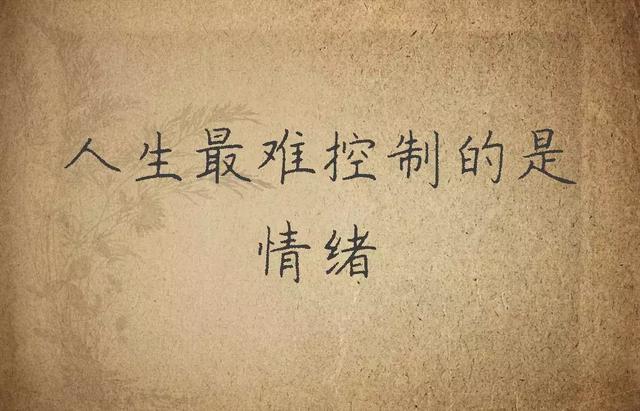 人生最难控制的是
情绪